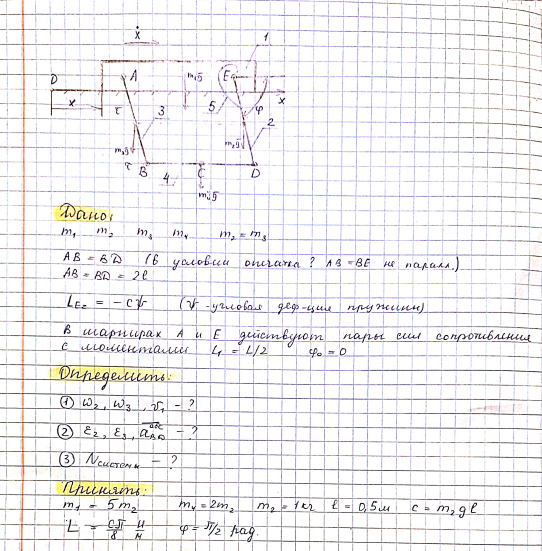 ẋ
1
D
A
m₁g̅
E
x
x
τ
3
5
φ
m₃g̅
m₂g̅
2
τ
B
4
C
D
m₄g̅
Дано:
m₁ m₂ m₃ m₄ m₂ = m₃
AB = BD (В условии опечатка? AB = BE не паралл.)
AB = BD = 2l
L_Ez = -cψ (ψ - угловая деф-ция пружины)
В шарнирах А и Е действуют пары сил сопротивления
с моментами L₁ = L/2 φ₀ = 0
Определить:
① ω₂, ω₃, v₁ - ?
② ε₂, ε₃, a̅ᵃᵇᶜ_BD - ?
③ Nсистемы - ?
Принять:
m₁ = 5m₂ m₄ = 2m₂ m₂ = 1кг l = 0,5м c = m₂gl
L = cπ/8 Н/м φ = π/2 рад.